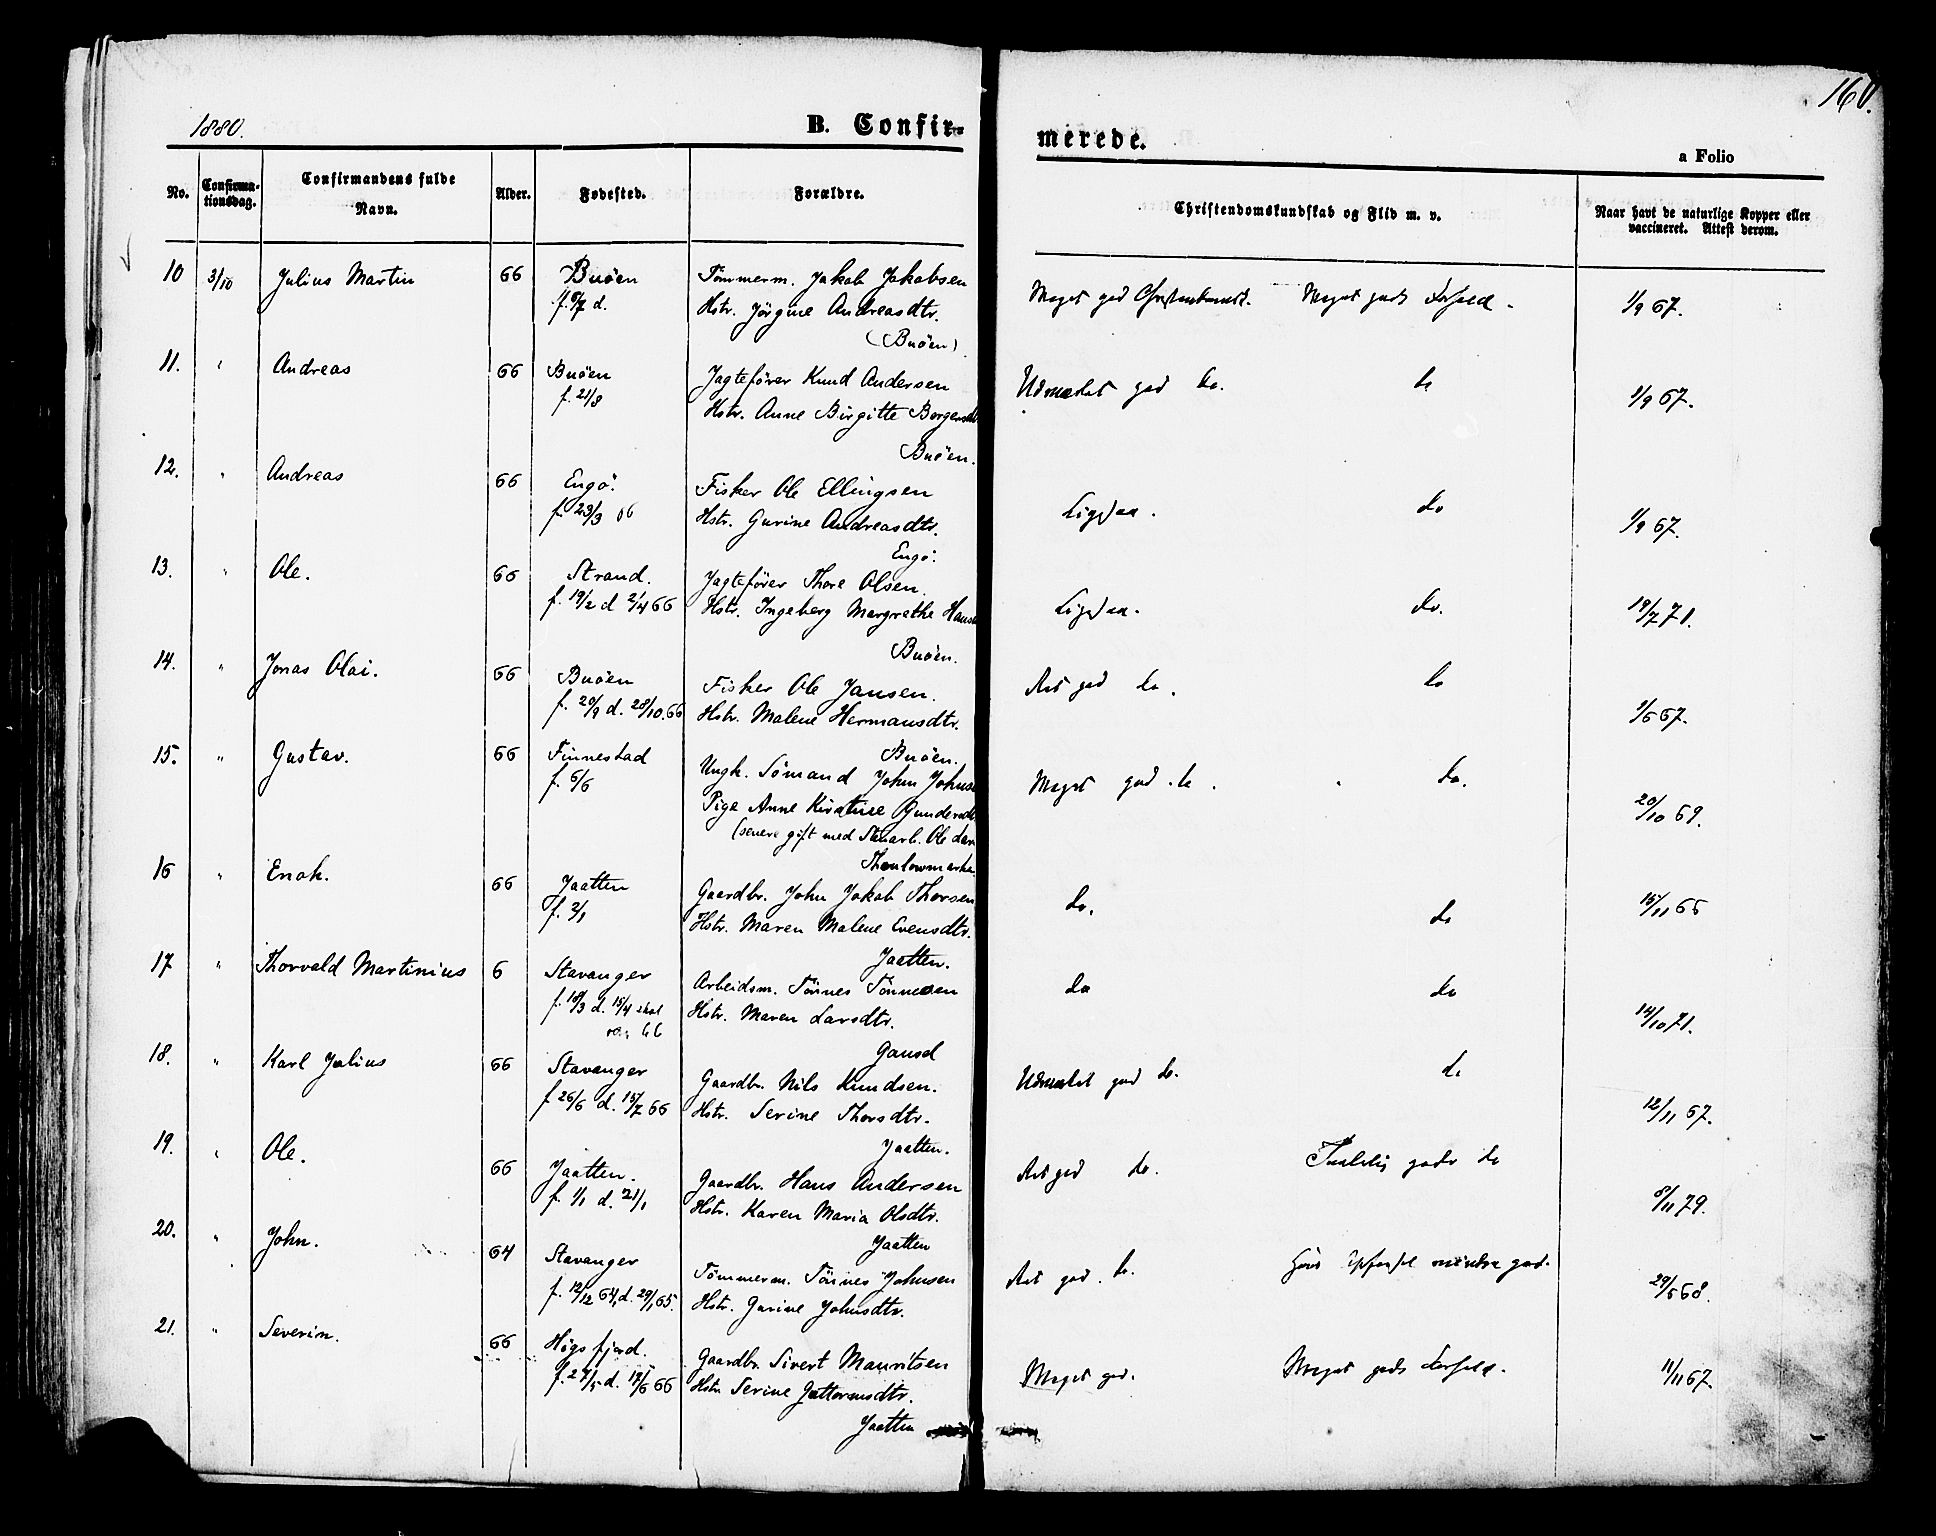 160.
1880.
B. Confir-
merede.
a Folio
No.
Confirma-
tionsdag.
Confirmandens fulde
Navn.
Alder.
Fødested.
Forældre.
Christendomskundskab og Flid m. v.
Naar havt de naturlige Kopper eller
vaccineret. Attest derom.
10 3/10 Julius Martin 66 Buöen Tömmerm. Jakob Jakobsen
Hstr. Jörgine Andreasdtr.
(Buöen)
Meget god Meget godt 1/9 67.
11. " Andreas 66 Buöen Jagtefører Knud Andersen
f. 21/8 Hstr. Anne Birgitte
Buöen.
Udmærket god do. do 1/9 67.
12. " Andreas 66 Engö. Fisker Ole Ellingsen
f. 23/3 66 Hstr. Gurine Andreasdtr.
Engö.
Ligesaa. do 1/9 67.
13. " Ole. 66 Strand. Jagtefører Thore Olsen.
f. 19/2 d 2/4 66 Hstr. Ingeberg Margrethe
Buöen.
Ligesaa. do. 19/7 71.
14. " Jonas Olai. 66 Buöen Fisker Ole Jansen.
f. 20/9 d. 28/10.66 Hstr. Malene Hermansdtr.
Buöen.
Ret god do. do 1/6 67.
15. " Gustav. 66 Finnestad Ungk. Sömand John
f. 6/6 Pige Anne
(senere gift med Ole
Meget god do. do. 20/10 69.
16 " Enok. 66 Jaatten Gaardbr. John Jakob Thorsen
f. 2/1 Hstr. Maren Malene Evensdtr.
Jaatten.
do. do 15/11 66
17 " Thorvald Martinius 6 Stavanger Arbeidsm. Tönnes Tönnesen
f. 18/3 d. 15/4 skal
66 Hstr. Maren Larsdtr.
Gausel
do do 14/10 71.
18. " Karl Julius 66 Stavanger Gaardbr. Nils Knudsen.
f 26/6 d. 15/7 66 Hstr. Serine Thorsdtr.
Jaatten.
Udmærket god do. do 12/11 67.
19. " Ole. 66 Jaatten. Gaardbr. Hans Andersen
f. 1/1 d. 21/1 Hstr. Karen Maria Olsdtr.
Jaatten
Ret god do. godt do 8/11 79.
20. " John. 64 Stavanger Tömmerm. Tönnes Johnsen
f. 12/12 64, d. 29/1 65. Hstr. Gurine Johnsdtr.
Ret god do. mindre god. 29/6 68.
21. " Severin. 66 Høgsfjord. Gaardbr. Sivert Mauritsen
f. 27/5 d. 17/6 66 Hstr. Serine
Jaatten
Meget god. Meget godt 11/11 67.